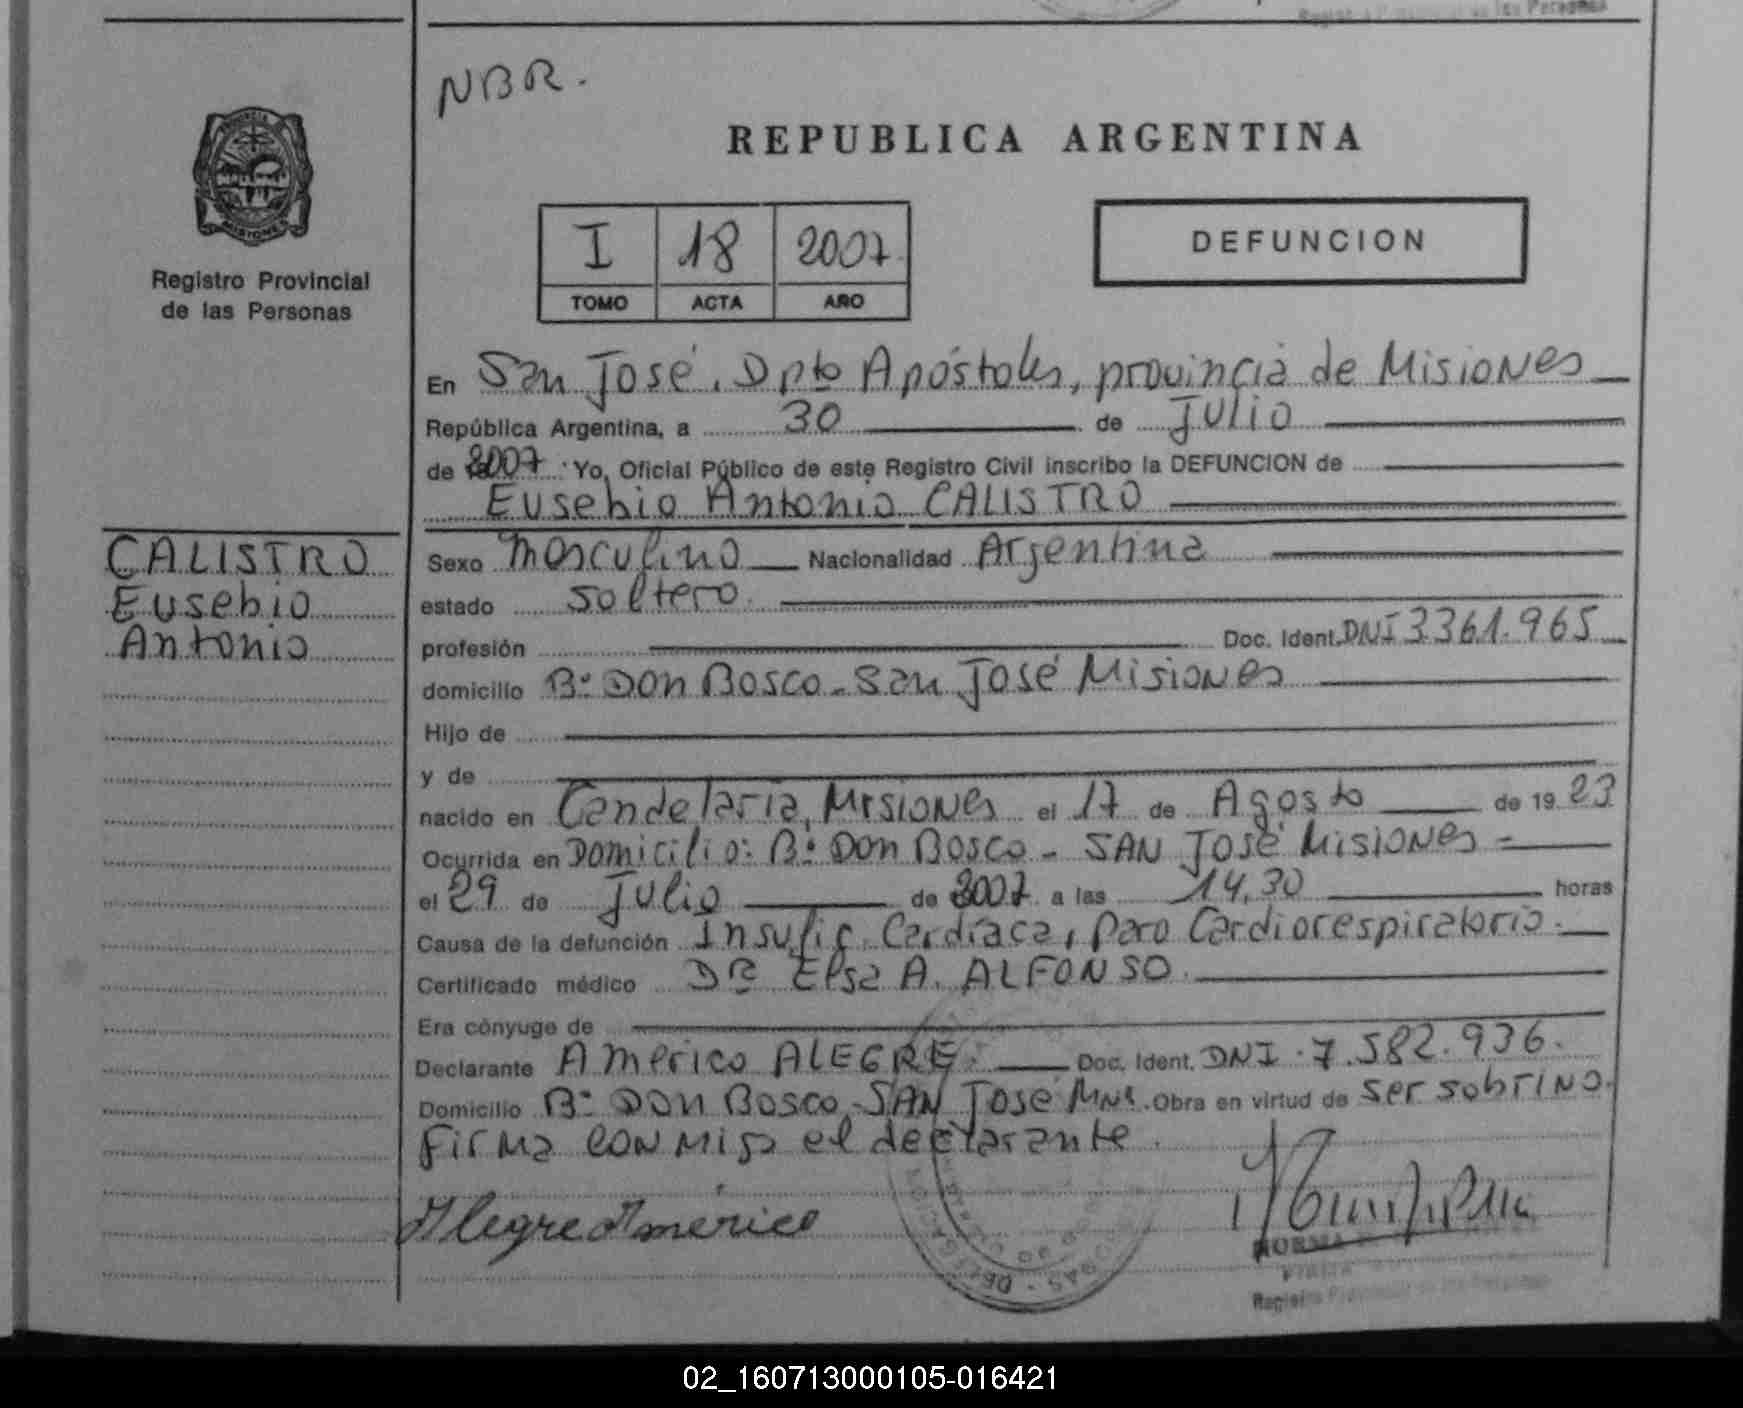 NBR.
REPUBLICA ARGENTINA
I 18 2007
TOMO ACTA AÑO
DEFUNCION
PROVINCIA
MISIONES
Registro Provincial
de las Personas
En San José. Dpto Apóstoles, provincia de Misiones
República Argentina, a 30 de Julio
de 2007 Yo, Oficial Público de este Registro Civil inscribo la DEFUNCION de
Eusebio Antonio CALISTRO
CALISTRO
Eusebio
Antonio
Sexo Masculino Nacionalidad Argentina
estado soltero.
profesión Doc. Ident. DNI 3361.965
domicilio Bº Don Bosco - San José Misiones
Hijo de
y de
nacido en Candelaria, Misiones el 17 de Agosto de 1923
Ocurrida en Domicilio: Bº Don Bosco - SAN José Misiones =
el 29 de Julio de 2007 a las 14,30 horas
Causa de la defunción Insufic. Cardíaca, Paro Cardiorespiratorio.
Certificado médico DRa Elsa A. ALFONSO.
Era cónyuge de
Declarante Américo ALEGRE. Doc. Ident. DNI. 7.582.936.
Domicilio Bº Don Bosco - SAN José Mnes. Obra en virtud de ser sobrino.
Firma conmigo el declarante.
Alegre Américo
NORMA
Registro Provincial de las Personas
02_160713000105-016421